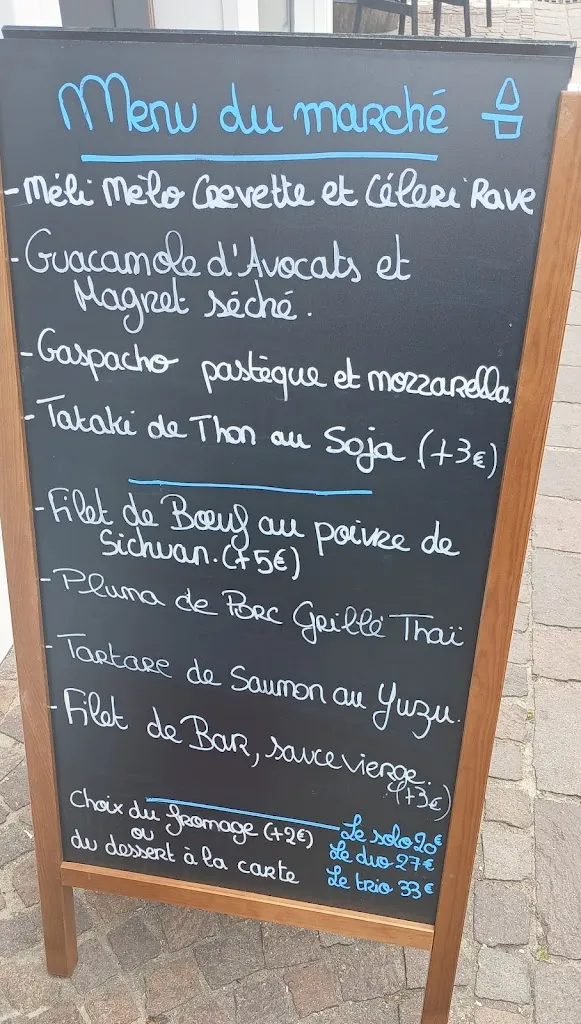 Menu du marché
- Méli Mèlo Crevette et Céleri Rave
- Guacamole d'Avocats et
Magret séché.
- Gaspacho pastèque et mozzarella
- Tataki de Thon au Soja (+3€)
- Filet de Bœuf au poivre de
Sichuan. (+5€)
- Pluma de Porc Grillé Thaï
- Tartare de Saumon au Yuzu.
- Filet de Bar, sauce vierge.
(+3€)
Choix du fromage (+2€)
ou
du dessert à la carte
Le solo 20€
Le duo 27€
Le trio 33€